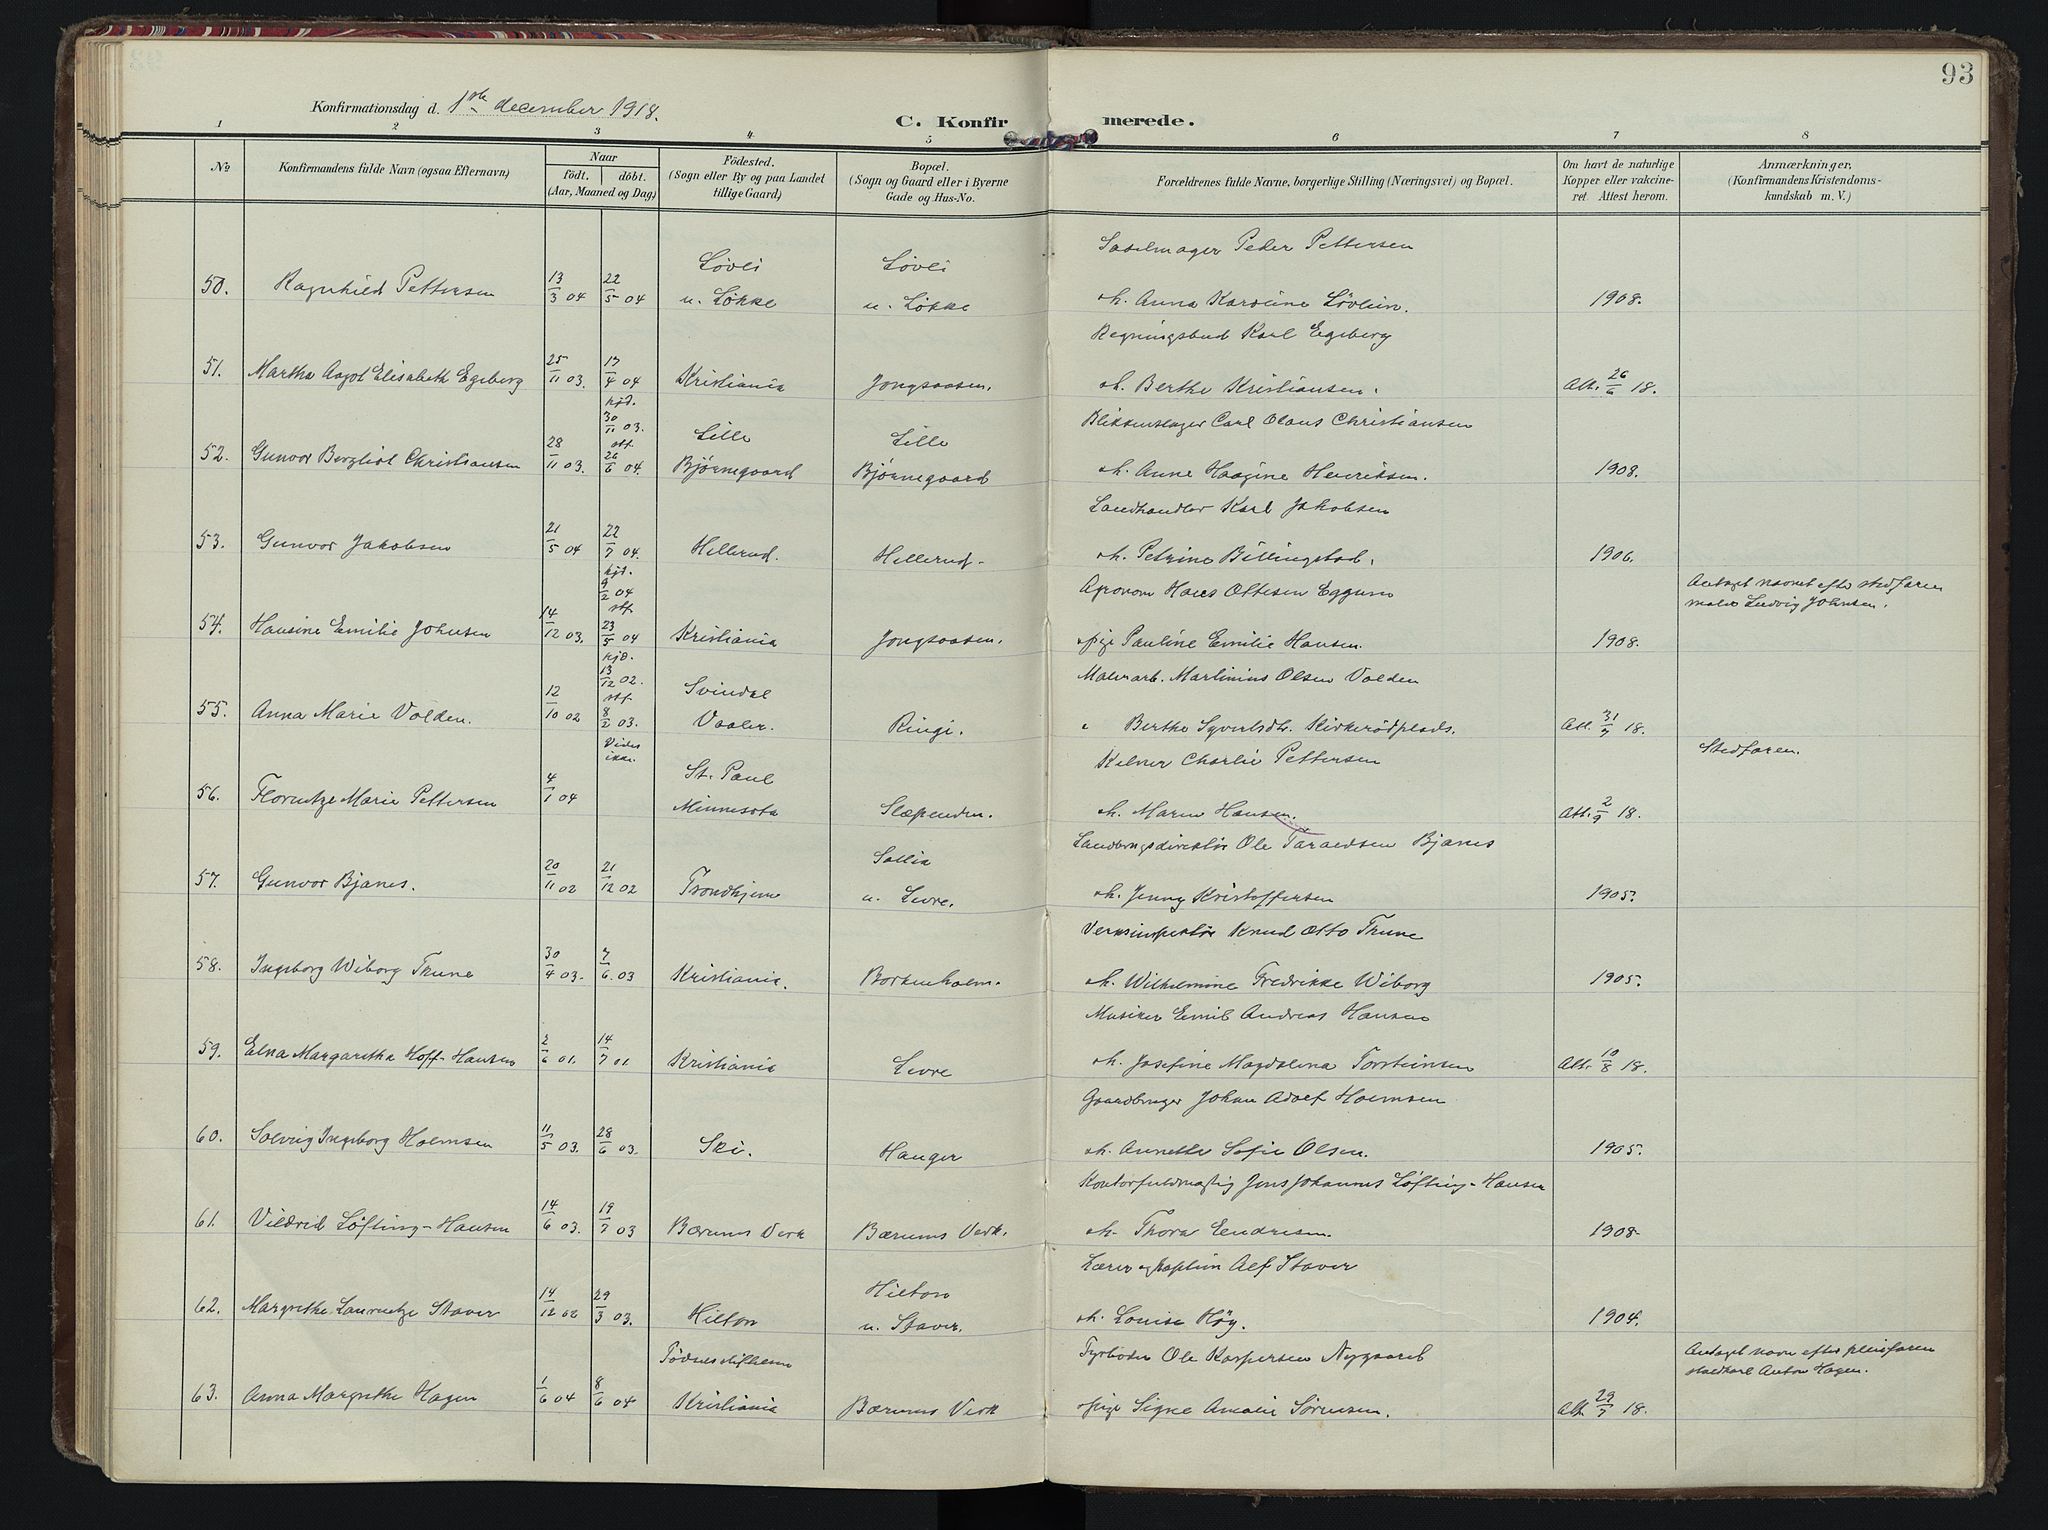 93
Konfirmationsdag d. 1ste december 1918.
C. Konfirmerede.
1 2 3 4 5 6 7 8
No
Konfirmandens fulde Navn (ogsaa Efternavn)
Naar
födt. döbt.
(Aar, Maaned og Dag)
Födested.
(Sogn eller By og paa Landet
tillige Gaard)
Bopæl.
(Sogn og Gaard eller i Byerne
Gade og Hus-No.
Forældrenes fulde Navne, borgerlige Stilling (Næringsvei) og Bopæl.
Om havt de naturlige
Kopper eller vakcine-
ret. Attest herom.
Anmærkninger,
(Konfirmandens Kristendoms-
kundskab m. V.)
Løvli Løvli Sadelmager Peder Pettersen
50. Ragnhild Pettersen 13/3 04 22/5 04 u. Løkke u. Løkke oh. Anna Karoline Løvlien. 1908.
Regningsbud Karl Egeberg
51. Martha Aagot Elisabeth Egeberg 25/11 03. 13/4 04 Kristiania Jongsaasen. oh. Berthe Kristiansen. Att. 26/6 18.
hjd. 30/11 03. Lille Lille Blikkenslager Carl Olaus Christiansen
52. Gunvor Bergliot Christiansen 28/11 03. stf. 26/6 04. Bjørnegaard Bjørnegaard oh. Anne Haagine Henriksen. 1908.
Landhandler Karl Jakobsen
53. Gunvor Jakobsen 21/5 04 22/7 04. Hellerud. Hellerud. oh. Petrine Billingstad. 1906.
hjd. 9/2 04 Agronom Hans Ottesen Eggum Antaget navnet efter stedfaren
maler Ludvig Johnsen.
54. Hansine Emilie Johnsen 14/12 03. stf. 23/5 04 Kristiania Jongsaasen. opige Pauline Emilie Hansen. 1908.
hjd. 13/12 02. Svindal Malerarb. Martinius Olsen Volden
55. Anna Marie Volden. 12/10 02 stf. 8/2 03. Vaaler. Ringi. " Berthe Syvertsdtr. Kirkerødplads. Att. 31/7 18.
Vides ikke. St. Paul Kelner Charlie Pettersen Stedfaren.
56. Florentze Marie Pettersen 4/1 04 Minnesota Slæpenden. oh. Maren Hansen. Att. 2/9 18.
Sollia Landbrugsdirektør Ole Taraldsen Bjanes
57. Gunvor Bjanes. 20/11 02 21/12 02 Trondhjem u. Levre. oh. Jenny Kristoffersen 1905.
Verksinspektør Knud Otto Thune
58. Ingeborg Wiborg Thune 30/4 03. 7/6. 03 Kristiania. Borkenholm. oh. Wilhelmine Fredrikke Wiborg 1905.
Musiker Emil Andreas Hansen
59. Elna Margaretha Hoff-Hansen 2/6 01. 14/7 01. Kristiania Levre oh. Josefine Magdalena Torsteinsen Att. 10/8 18.
Gaardbruger Johan Adolf Holmsen
60. Solveig Ingeborg Holmsen 11/5 03. 28/6 03. Ski. Hauger oh. Annette Sofie Olsen. 1905.
Kontorfuldmægtig Jens Johannes Løfting-Hansen
61. Vildrid Løfting-Hansen 14/6 03. 19/7 03 Bærums Verk Bærums Verk. oh. Thora Endresen. 1908.
Hilton Lærer og kaptein Alf Staver
62. Margrethe Laurentze Staver 14/12 02 29/3 03. Hilton u. Staver. oh. Louise Høy. 1904.
Fødselsstiftelsen Fyrbøder Ole Kaspersen Nygaard Antaget navn efter pleiefaren
stedkarl Anton Hagen.
63. Anna Margrethe Hagen 1/6 04 8/6 04 Kristiania Bærums Verk opige Signe Amalie Sørensen. Att. 29/7 18.